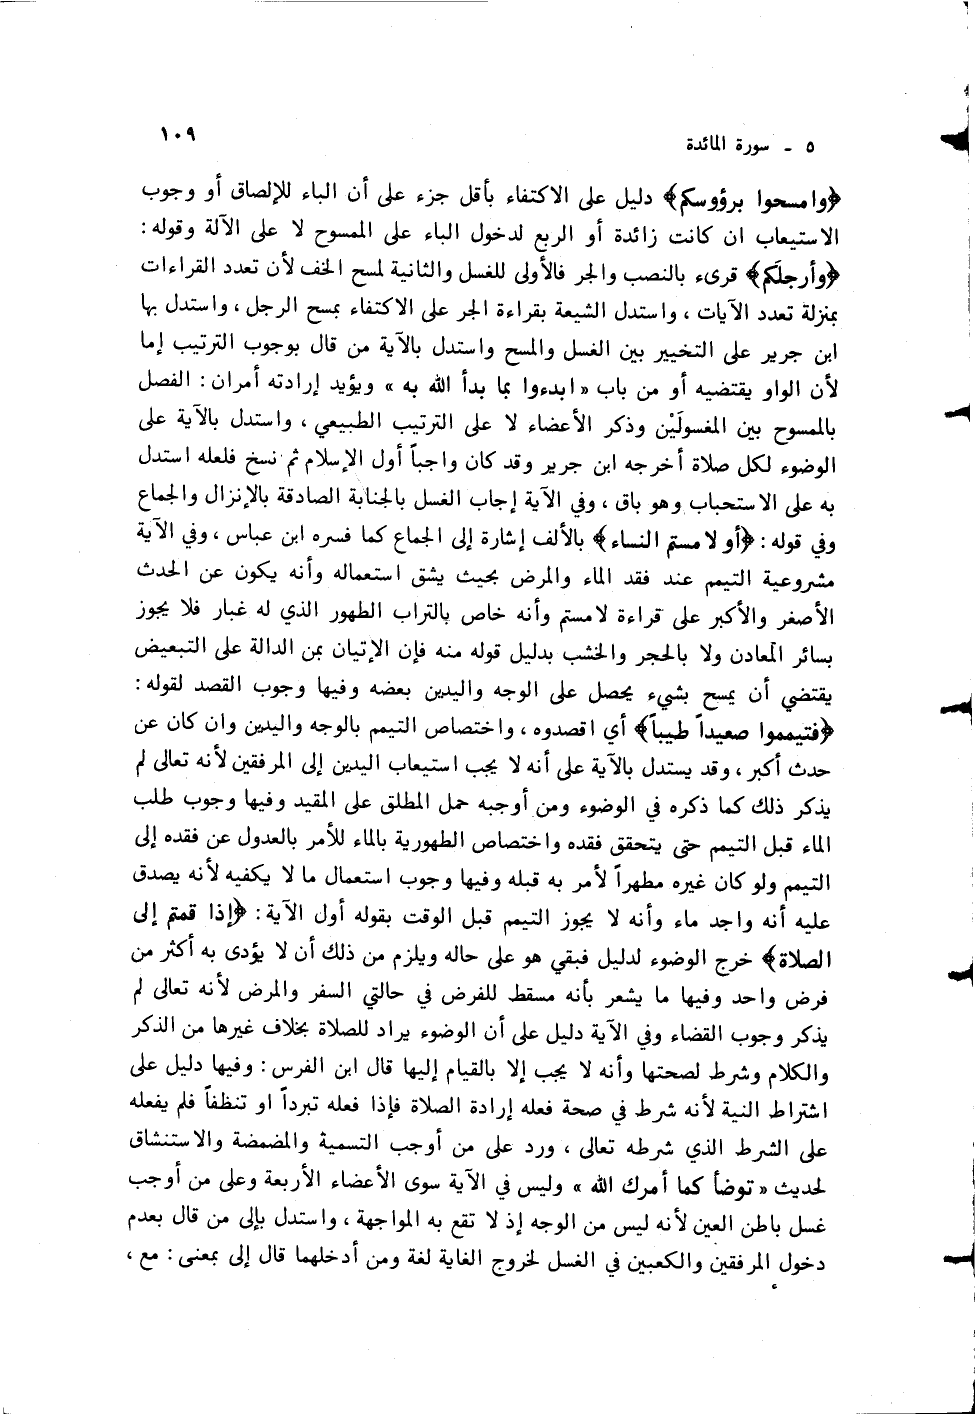 ٥ - سورة المائدة ١٠٩
﴿وامسحوا برؤوسكم﴾ دليل على الاكتفاء بأقل جزء على أن الباء للإلصاق أو وجوب
الاستيعاب ان كانت زائدة أو الربع لدخول الباء على الممسوح لا على الآلة وقوله :
﴿وأرجلَكم﴾ قرىء بالنصب والجر فالأولى للغسل والثانية لمسح الخف لأن تعدد القراءات
بمنزلة تعدد الآيات ، واستدل الشيعة بقراءة الجر على الاكتفاء بمسح الرجل ، واستدل بها
ابن جرير على التخيير بين الغسل والمسح واستدل بالآية من قال بوجوب الترتيب إما
لأن الواو يقتضيه أو من باب « ابدءوا بما بدأ الله به » ويؤيد إرادته أمران : الفصل
بالممسوح بين المغسولَيْن وذكر الأعضاء لا على الترتيب الطبيعي ، واستدل بالآية على
الوضوء لكل صلاة أخرجه ابن جرير وقد كان واجباً أول الإسلام ثم نسخ فلعله استدل
به على الاستحباب وهو باق ، وفي الآية إجاب الغسل بالجنابة الصادقة بالإنزال والجماع
وفي قوله : ﴿أو لامستم النساء﴾ بالألف إشارة إلى الجماع كما فسره ابن عباس ، وفي الآية
مشروعية التيمم عند فقد الماء والمرض بحيث يشق استعماله وأنه يكون عن الحدث
الأصغر والأكبر على قراءة لامستم وأنه خاص بالتراب الطهور الذي له غبار فلا يجوز
بسائر المعادن ولا بالحجر والخشب بدليل قوله منه فإن الإتيان بمن الدالة على التبعيض
يقتضي أن يمسح بشيء يحصل على الوجه واليدين بعضه وفيها وجوب القصد لقوله :
﴿فتيمموا صعيداً طيباً﴾ أي اقصدوه ، واختصاص التيمم بالوجه واليدين وان كان عن
حدث أكبر ، وقد يستدل بالآية على أنه لا يجب استيعاب اليدين إلى المرفقين لأنه تعالى لم
يذكر ذلك كما ذكره في الوضوء ومن أوجبه حمل المطلق على المقيد وفيها وجوب طلب
الماء قبل التيمم حتى يتحقق فقده واختصاص الطهورية بالماء للأمر بالعدول عن فقده إلى
التيمم ولو كان غيره مطهراً لأمر به قبله وفيها وجوب استعمال ما لا يكفيه لأنه يصدق
عليه أنه واجد ماء وأنه لا يجوز التيمم قبل الوقت بقوله أول الآية : ﴿إذا قمتم إلى
الصلاة﴾ خرج الوضوء لدليل فبقي هو على حاله ويلزم من ذلك أن لا يؤدى به أكثر من
فرض واحد وفيها ما يشعر بأنه مسقط للفرض في حالتي السفر والمرض لأنه تعالى لم
يذكر وجوب القضاء وفي الآية دليل على أن الوضوء يراد للصلاة بخلاف غيرها من الذكر
والكلام وشرط لصحتها وأنه لا يجب إلا بالقيام إليها قال ابن الفرس : وفيها دليل على
اشتراط النية لأنه شرط في صحة فعله إرادة الصلاة فإذا فعله تبرداً او تنظفاً فلم يفعله
على الشرط الذي شرطه تعالى ، ورد على من أوجب التسمية والمضمضة والاستنشاق
لحديث « توضأ كما أمرك الله » وليس في الآية سوى الأعضاء الأربعة وعلى من أوجب
غسل باطن العين لأنه ليس من الوجه إذ لا تقع به المواجهة ، واستدل بإلى من قال بعدم
دخول المرفقين والكعبين في الغسل لخروج الغاية لغة ومن أدخلهما قال إلى بمعنى : مع ،